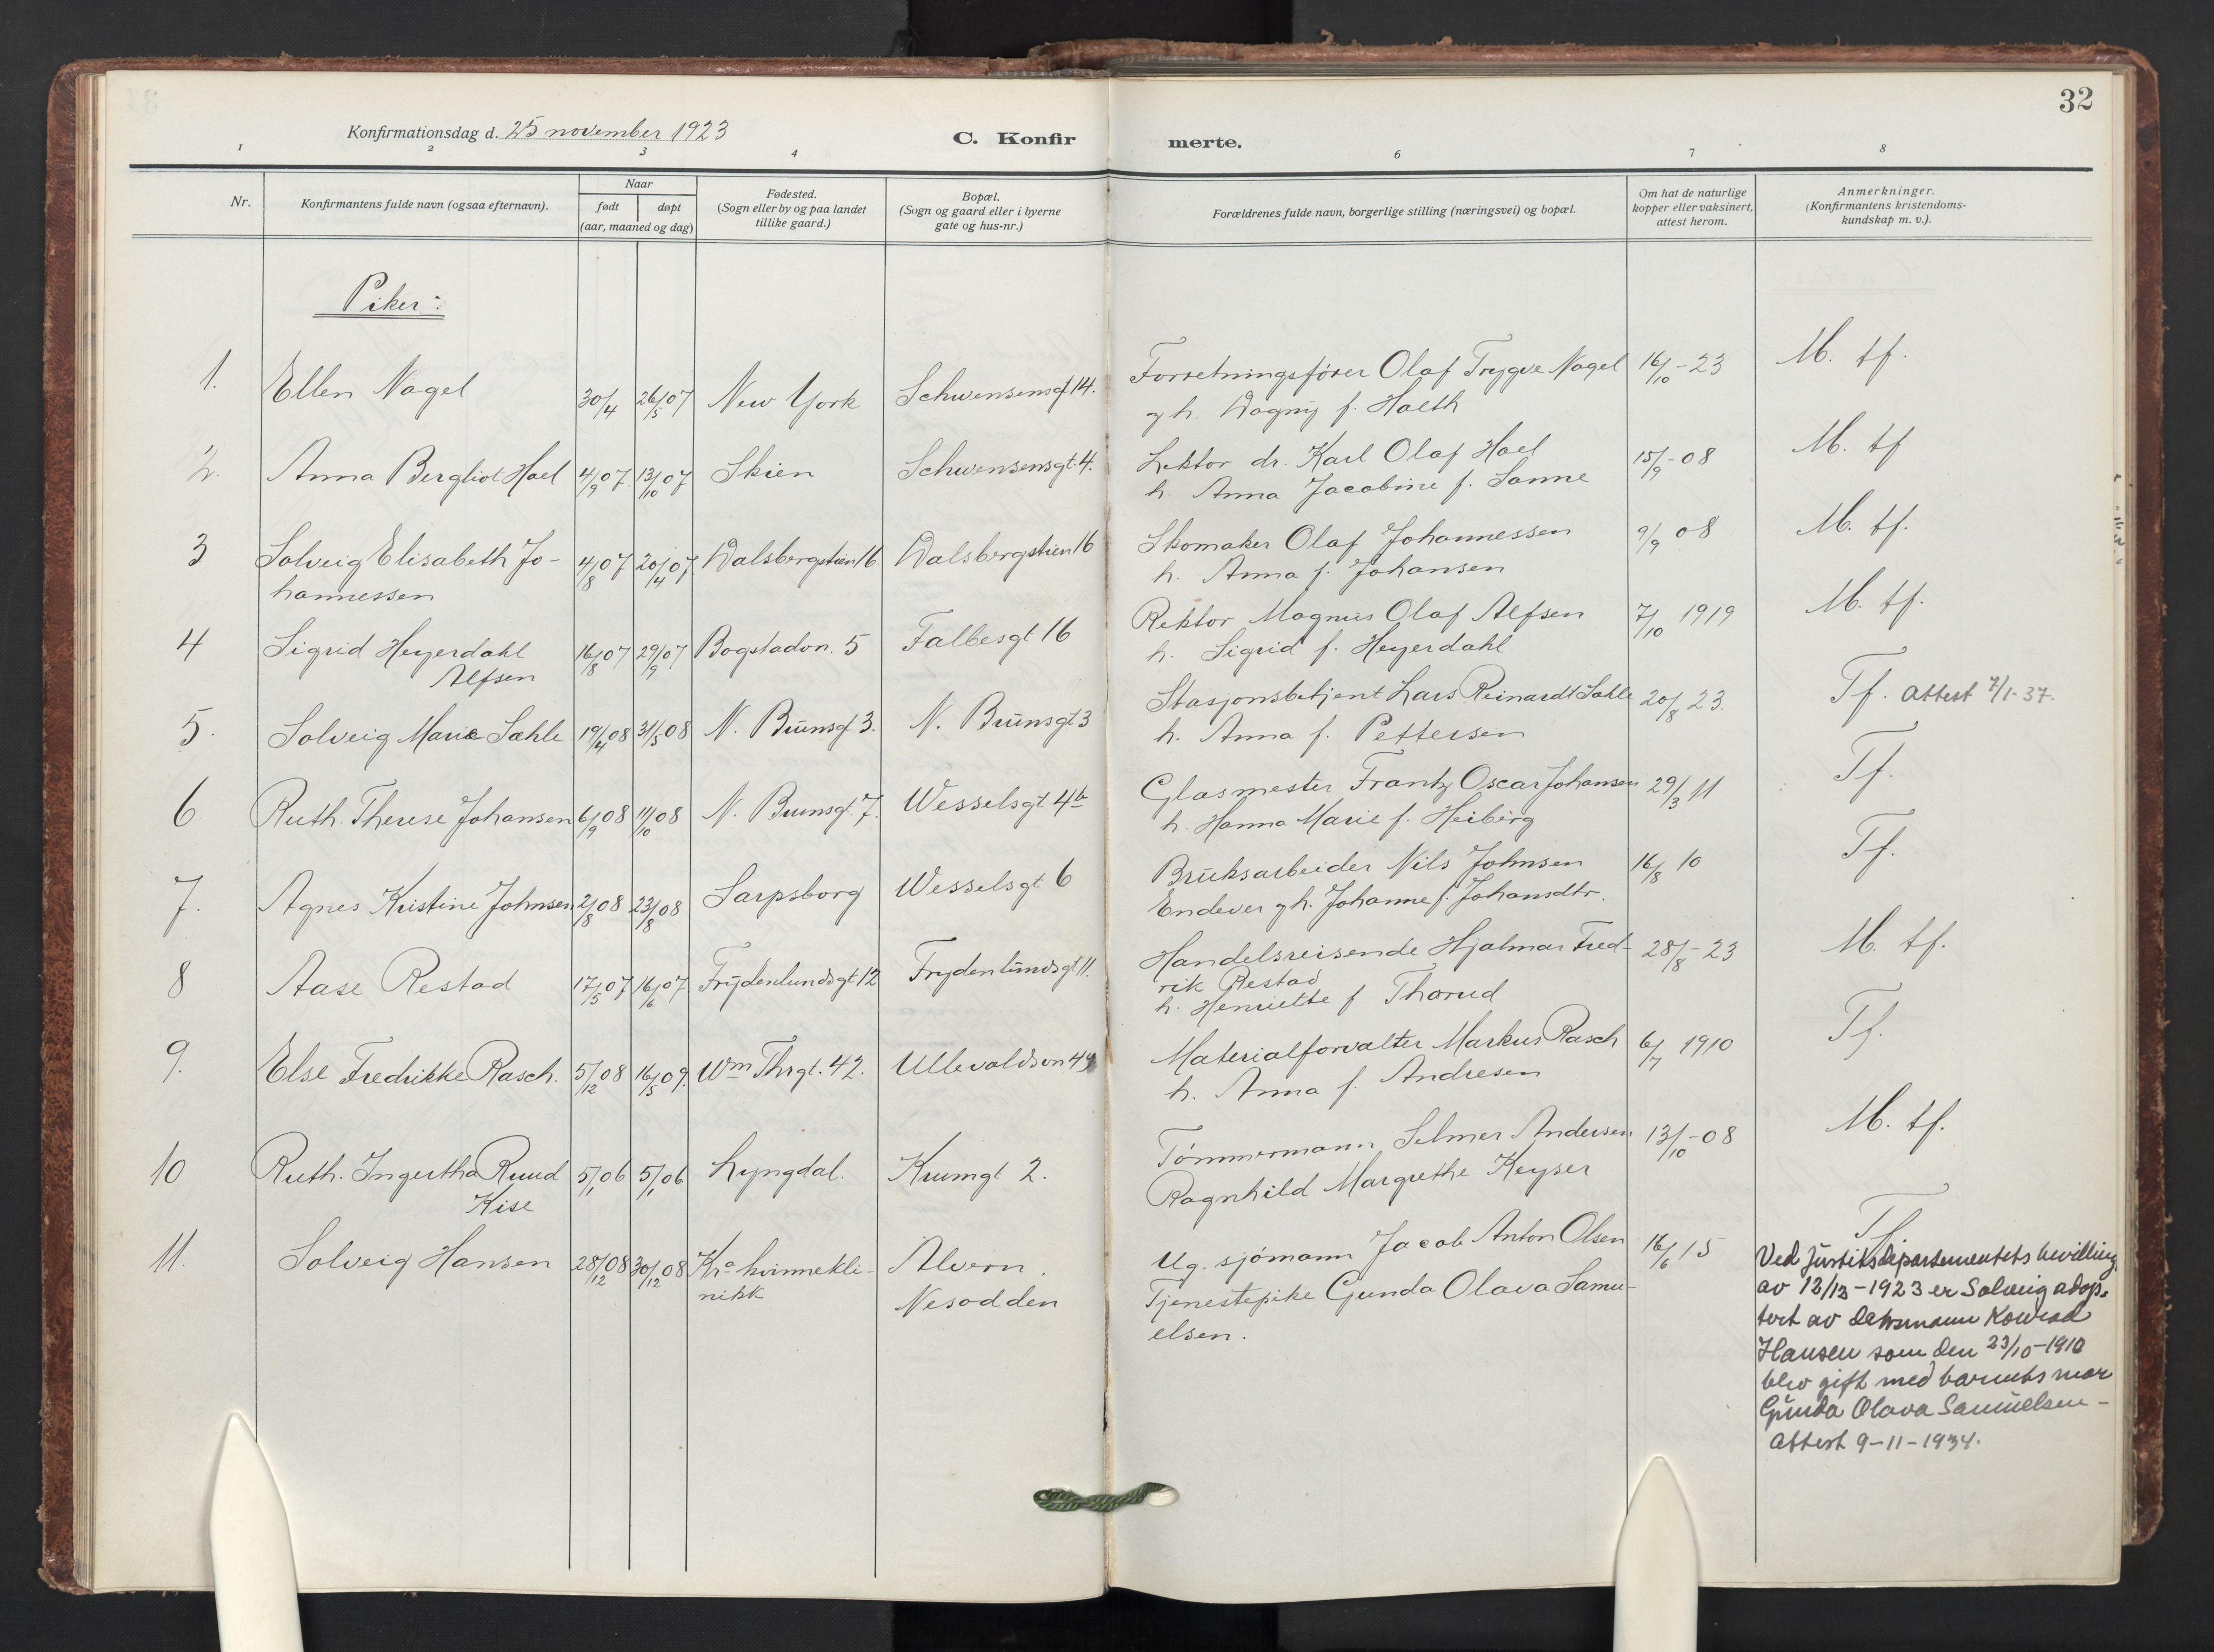 32
Konfirmationsdag d. 25 november 1923
C. Konfirmerte.
1 2 3 4 6 7 8
Nr.
Konfirmantens fulde navn (ogsaa efternavn).
Naar
født døpt
(aar, maaned og dag)
Fødested.
(Sogn eller by og paa landet
tillike gaard.)
Bopæl.
(Sogn og gaard eller i byerne
gate og hus-nr.)
Forældrenes fulde navn, borgerlige stilling (næringsvei) og bopæl.
Om hat de naturlige
kopper eller vaksinert,
attest herom.
Anmerkninger.
(Konfirmantens kristendoms-
kundskap m. v.).
Piker:
1. Ellen Nagel 30/4 26/5 07 New York Schwensensgt 14. Forretningsfører Olaf Trygve Nagel 16/10-23 M. tf.
g h. Dagny f. Halth
2. Anna Bergliot Hoel 4/9 07 13/10 07 Skien Schwensensgt. 4. Lektor dr. Karl Olaf Hoel 15/9-08 M. tf
h. Anna Jacobine f. Sanne
3 Solveig Elisabeth Jo- 4/8 07 20/4 07 Dalsbergstien 16 Dalsbergstien 16 Skomaker Olaf Johannessen 9/9 08 M. tf.
hannessen h. Anna f. Johansen
4 Sigrid Heyerdahl 16/8 07 29/9 07 Bogstadvn. 5 Falbesgt 16 Rektor Magnus Olaf Alfsen 7/10 1919 M. tf.
Alfsen h. Sigrid f. Heyerdahl
5. Solveig Marie Sahle 19/4 08 31/5 08 N. Brunsgt 3. N. Brunsgt 3 Stasjonsbetjent Lars Reinardt Sahle 20/8 23. Tf. attest 7/1-37.
h. Anna f. Pettersen
6 Ruth Therese Johansen 6/9 08 11/10 08 N. Brunsgt. 7. Wesselsgt 4b Glasmester Frantz Oscar Johansen 29/3 11 Tf.
h. Hanna Marie f. Heiberg
7. Agnes Kristine Johnsen 2/8 08 23/8 08 Sarpsborg Wesselsgt 6 Bruksarbeider Nils Johnsen 16/8 10 Tf.
Endever g h. Johanne f. Johansdtr.
8 Aase Restad 17/5 07 16/6 07 Frydenlundsgt 12 Frydenlundsgt 11. Handelsreisende Hjalmar Fred- 28/8-23 M. tf.
rik Restad
h. Henriette f Thorud
9. Else Fredrikke Rasch. 5/12 08 16/5 09. Wm Thrgt. 42. Ullevoldsvn 49 Materialforvalter Markus Rasch 6/7 1910 Tf.
h. Anna f. Andresen
10 Ruth. Ingertha Ruud 5/1 06 5/1 06 Lyngdal. Krumgt 2. Tømmermann Selmer Andersen 13/10-08 M. tf.
Kise Ragnhild Margrethe Keyser
11. Solveig Hansen 28/12 08 30/12 08 Kra kvinnekli- Alvern. Ug. sjømann Jacob Anton Olsen 16/6 15 Tf.
nikk Nesodden Tjenestepike Gunda Olava Samu-
elsen.
Ved Justitsdepartementets bevilling
av 12/12-1923 er Solveig adop-
tert av Konrad
Hansen som den 23/10-1910
blev gift med barnets mor
Gunda Olava Samuelsen-
Attest 9-11-1934.